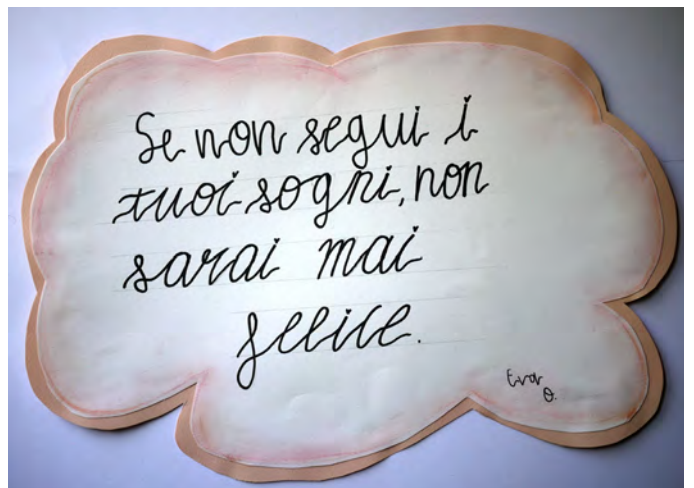 Se non segui i
tuoi sogni, non
sarai mai
felice.
Eva
O.